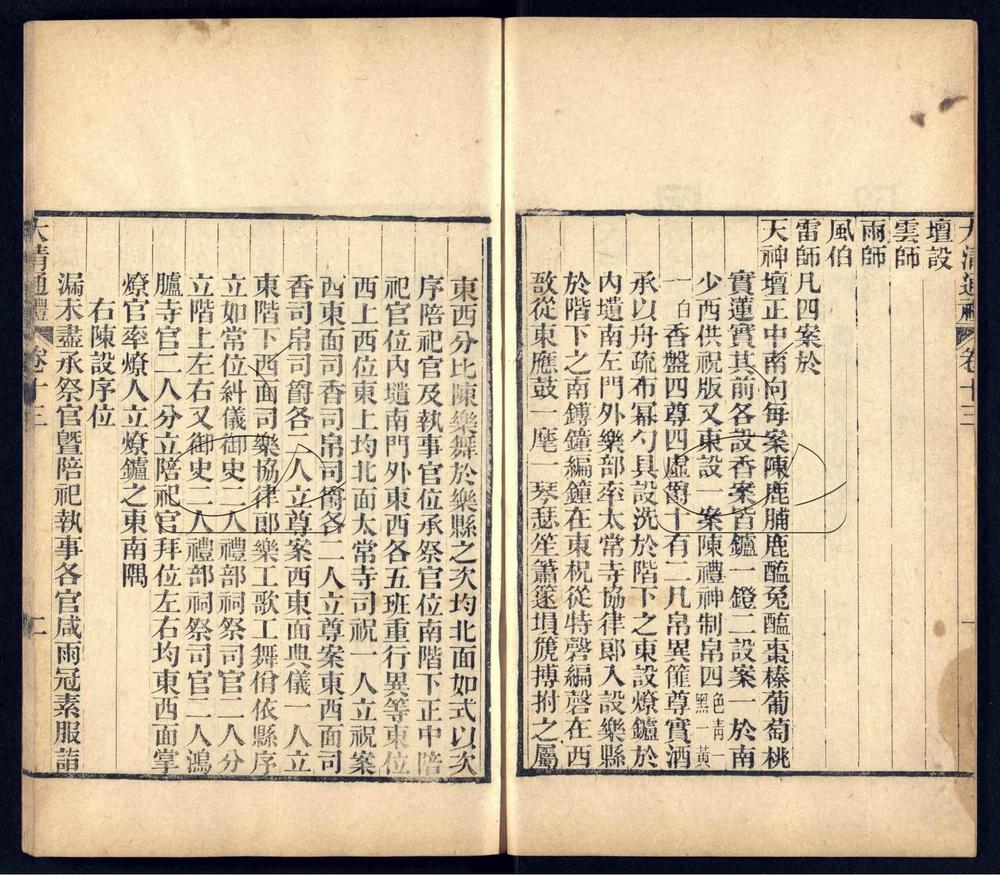 大清通禮 卷十三 一
壇設
雲師
雨師
風伯
雷師凡四案於
天神壇正中南向每案陳鹿脯鹿醢兔醢棗榛葡萄桃
實蓮實其前各設香案皆鑪一鐙二設案一於南
少西供祝版又東設一案陳禮神制帛四色青一黃一黑一白
一香盤四尊四虛爵十有二凡帛異篚尊實酒
承以舟疏布冪勺具設洗於階下之東設燎鑪於
內壝南左門外樂部率太常寺協律郎入設樂縣
於階下之南鎛鐘編鐘在東柷從特磬編磬在西
敔從東應鼓一麾一琴瑟笙簫篴塤篪搏拊之屬
東西分比陳樂舞於樂縣之次均北面如式以次
序陪祀官及執事官位承祭官位南階下正中陪
祀官位內壝南門外東西各五班重行異等東位
西上西位東上均北面太常寺司祝一人立祝案
西東面司香司帛司爵各二人立尊案東西面司
香司帛司爵各二人立尊案西東面典儀一人立
東階下西面司樂協律郎樂工歌工舞佾依縣序
立如常位糾儀御史二人禮部祠祭司官二人分
立階上左右又御史二人禮部祠祭司官二人鴻
臚寺官二人分立陪祀官拜位左右均東西面掌
燎官率燎人立燎鑪之東南隅
右陳設序位
漏未盡承祭官暨陪祀執事各官咸雨冠素服詣
大清通禮 卷十三 二